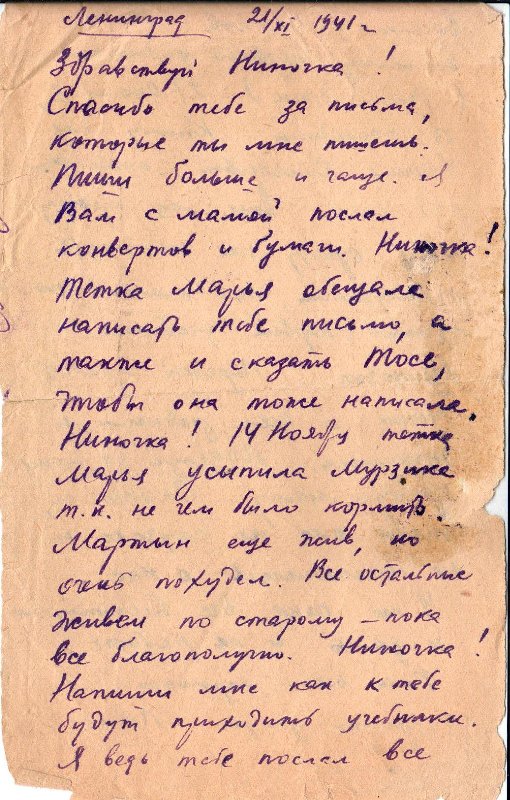 Ленинград 21/XI 1941 г.
Здравствуй Ниночка!
Спасибо тебе за письма,
которые ты мне пишешь.
Пиши больше и чаще. Я
Вам с мамой послал
конвертов и бумаги. Ниночка!
Тетка Марья обещала
написать тебе письмо, а
также и сказать Тосе,
чтобы она тоже написала.
Ниночка! 14 Ноября тетка
Марья усыпила Мурзика
т.к. не чем было кормить.
Мартын еще жив, но
очень похудел. Все остальные
живем по старому – пока
все благополучно. Ниночка!
Напиши мне как к тебе
будут приходить учебники.
Я ведь тебе послал все